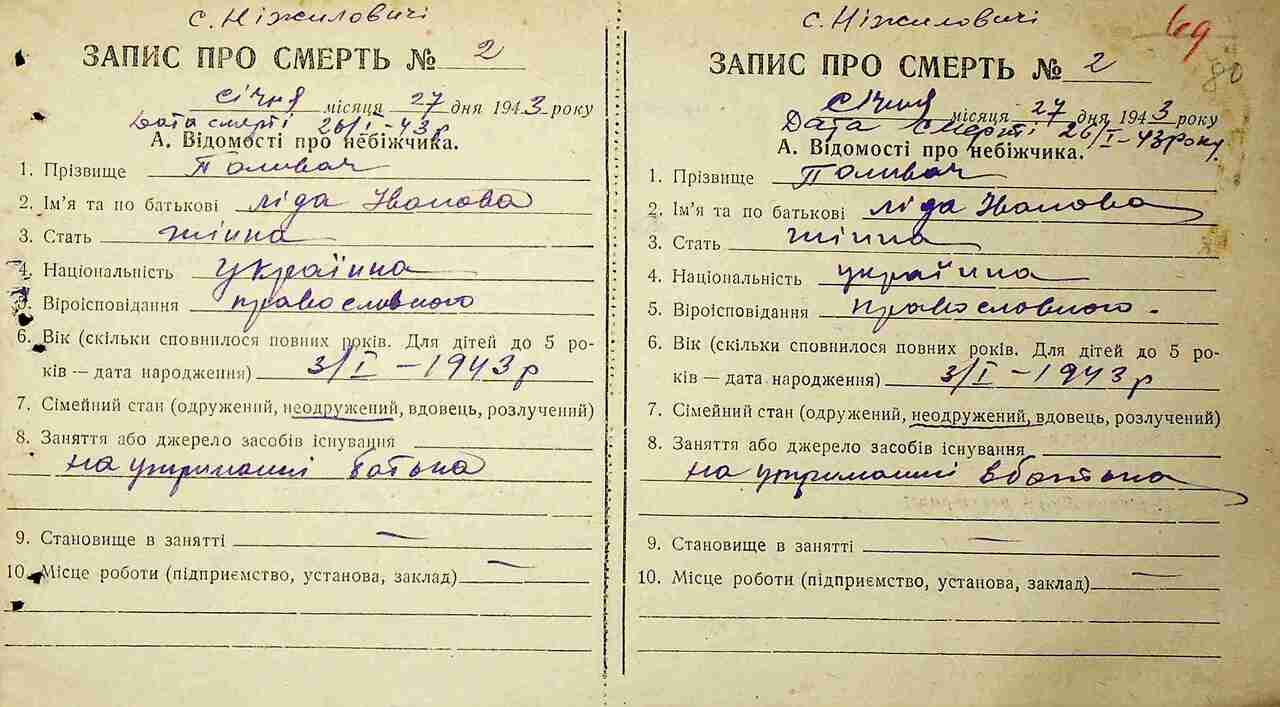 с. Ніжиловичі
ЗАПИС ПРО СМЕРТЬ № 2
січня місяця 27 дня 1943 року
Дата смерті 26/I-43р
А. Відомості про небіжчика.
1. Прізвище Поливач
2. Ім'я та по батькові Ліда Іванова
3. Стать жінка
4. Національність українка
5. Віроісповідання православного
6. Вік (скільки сповнилося повних років. Для дітей до 5 ро-
ків — дата народження) 3/I-1943р
7. Сімейний стан (одружений, неодружений, вдовець, розлучений)
8. Заняття або джерело засобів існування
на утриманні батька
9. Становище в занятті —
10. Місце роботи (підприємство, установа, заклад) —
с. Ніжиловичі
69
80
ЗАПИС ПРО СМЕРТЬ № 2
січня місяця 27 дня 1943 року
Дата смерті 26/I-43року
А. Відомості про небіжчика.
1. Прізвище Поливач
2. Ім'я та по батькові Ліда Іванова
3. Стать жінка
4. Національність українка
5. Віроісповідання православного.
6. Вік (скільки сповнилося повних років. Для дітей до 5 ро-
ків — дата народження) 3/I-1943р
7. Сімейний стан (одружений, неодружений, вдовець, розлучений)
8. Заняття або джерело засобів існування
на утриманні вбатька
9. Становище в занятті —
10. Місце роботи (підприємство, установа, заклад) —